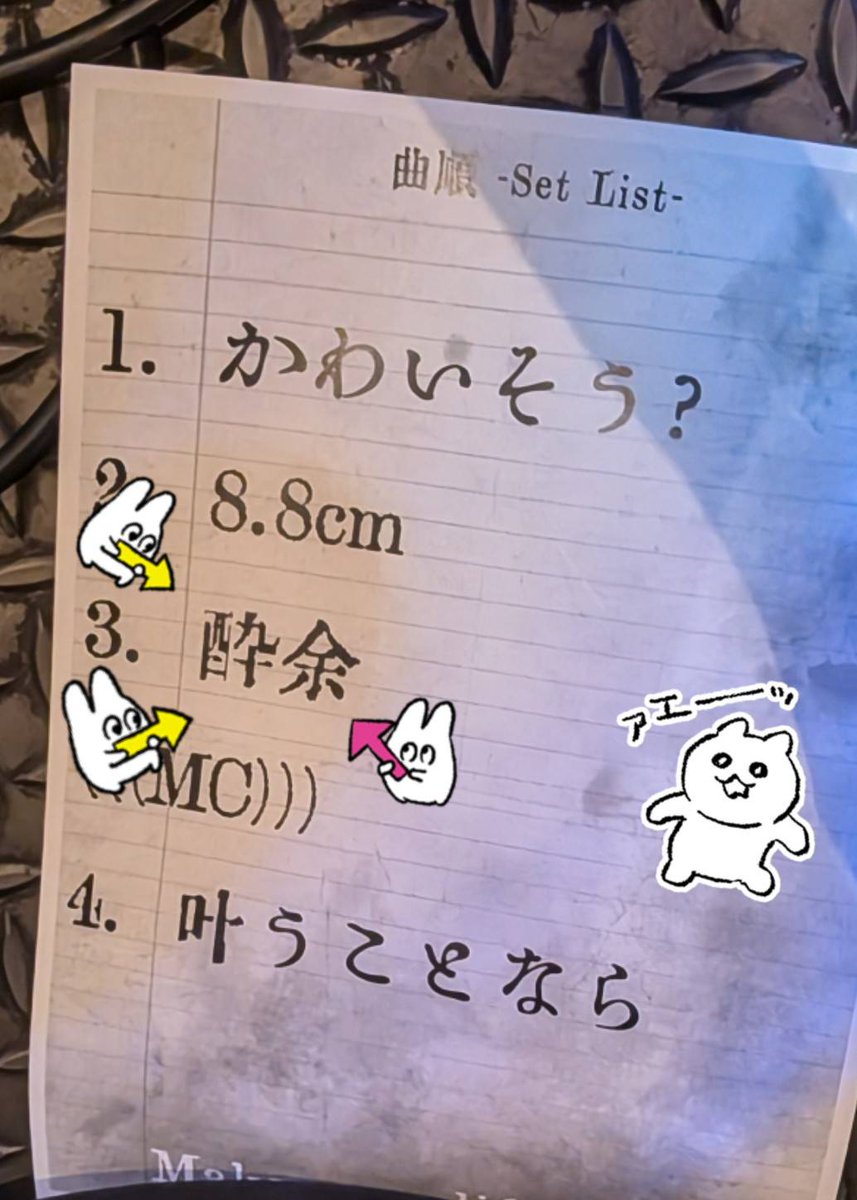 曲順 -Set List-
1. かわいそう?
2. 8.8cm
3. 酔余
(((MC)))
アエーーッ
4. 叶うことなら